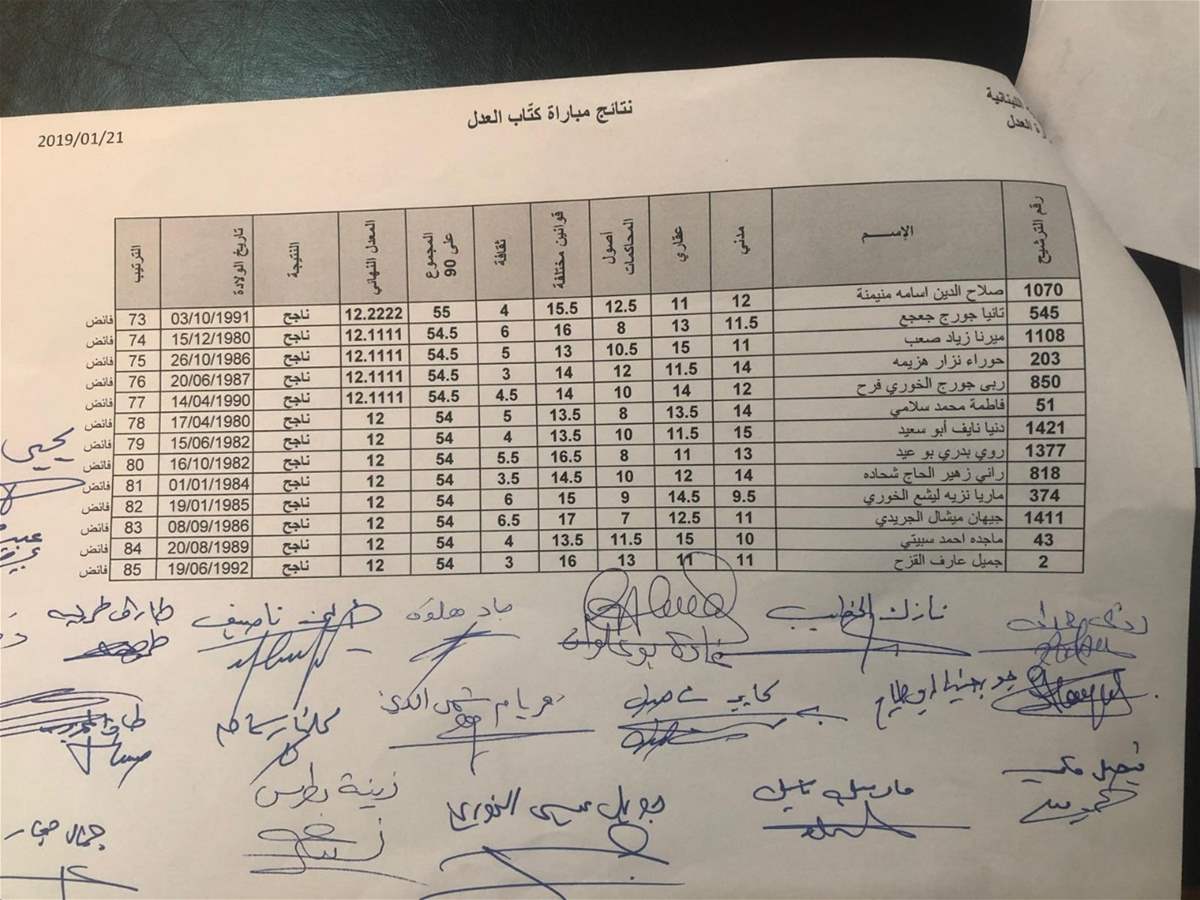 اللبنانية
العدل
نتائج مباراة كتّاب العدل
2019/01/21
رقم الترشيح الإســـم مدني عقاري أصول المحاكمات قوانين مختلفة ثقافة المجموع على 90 المعدل النهائي النتيجة تاريخ الولادة الترتيب
1070 صلاح الدين اسامه منيمنة 12 11 12.5 15.5 4 55 12.2222 ناجح 03/10/1991 73 فائض
545 تانيا جورج جعجع 11.5 13 8 16 6 54.5 12.1111 ناجح 15/12/1980 74 فائض
1108 ميرنا زياد صعب 11 15 10.5 13 5 54.5 12.1111 ناجح 26/10/1986 75 فائض
203 حوراء نزار هزيمه 14 11.5 12 14 3 54.5 12.1111 ناجح 20/06/1987 76 فائض
850 ربى جورج الخوري فرح 12 14 10 14 4.5 54.5 12.1111 ناجح 14/04/1990 77 فائض
51 فاطمة محمد سلامي 14 13.5 8 13.5 5 54 12 ناجح 17/04/1980 78 فائض
1421 دنيا نايف أبو سعيد 15 11.5 10 13.5 4 54 12 ناجح 15/06/1982 79 فائض
1377 روي بدري بو عيد 13 11 8 16.5 5.5 54 12 ناجح 16/10/1982 80 فائض
818 راني زهير الحاج شحاده 14 12 10 14.5 3.5 54 12 ناجح 01/01/1984 81 فائض
374 ماريا نزيه ليشع الخوري 9.5 14.5 9 15 6 54 12 ناجح 19/01/1985 82 فائض
1411 جيهان ميشال الجريدي 11 12.5 7 17 6.5 54 12 ناجح 08/09/1986 83 فائض
43 ماجده احمد سبيتي 10 15 11.5 13.5 4 54 12 ناجح 20/08/1989 84 فائض
2 جميل عارف القزح 11 11 13 16 3 54 12 ناجح 19/06/1992 85 فائض
يحيى
نازك الخطيب غادة بو علوان ناصيف طارق
مريام شمس الدين
جويل عيسى الخوري زينة بطرس